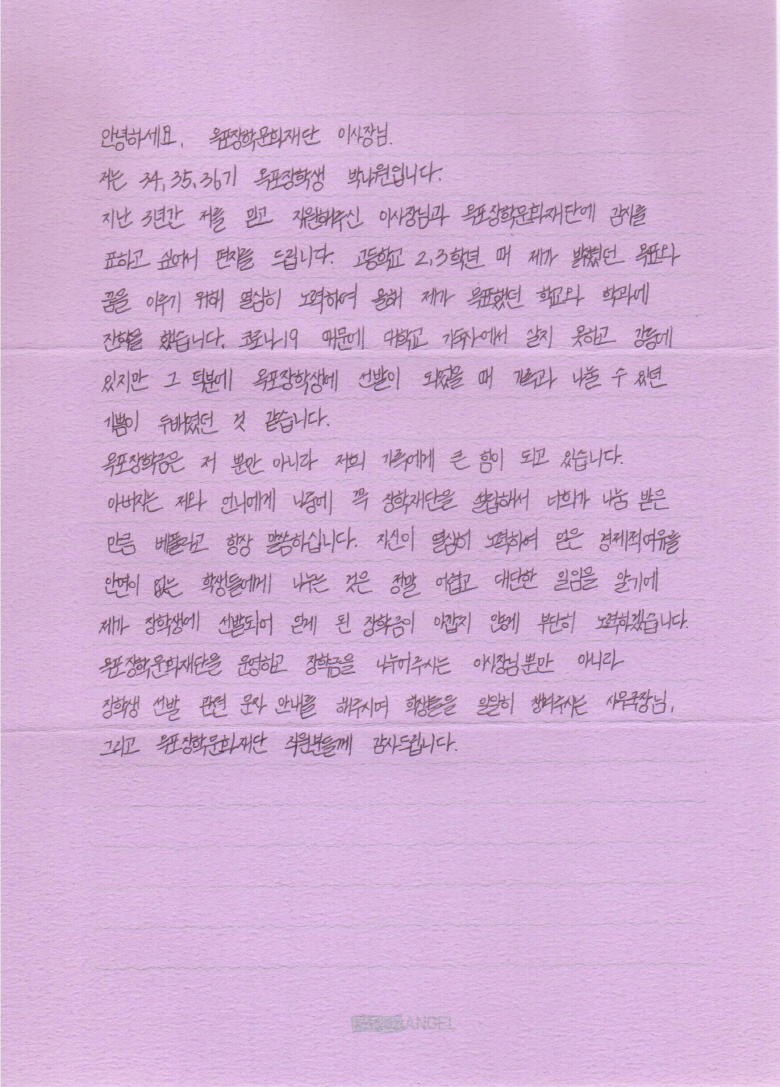 안녕하세요, 옥포장학문화재단 이사장님.
저는 34, 35, 36기 옥포장학생 박나원입니다.
지난 3년간 저를 믿고 지원해주신 이사장님과 옥포장학문화재단에 감사를
표하고 싶어서 편지를 드립니다. 고등학교 2,3학년 때 제가 밝혔던 목표와
꿈을 이루기 위해 열심히 노력하여 올해 제가 목표했던 학교와 학과에
진학을 했습니다. 코로나19 때문에 대학교 기숙사에서 살지 못하고 강릉에
있지만 그 덕분에 옥포장학생에 선발이 되었을 때 가족과 나눌 수 있던
기쁨이 두배였던 것 같습니다.
옥포장학금은 저 뿐만 아니라 저희 가족에게 큰 힘이 되고 있습니다.
아버지는 저와 언니에게 나중에 꼭 장학재단을 설립해서 너희가 나눔 받은
만큼 베풀라고 항상 말씀하십니다. 자신이 열심히 노력하여 얻은 경제적여유를
안면이 없는 학생들에게 나누는 것은 정말 어렵고 대단한 일임을 알기에
제가 장학생에 선발되어 얻게 된 장학금이 아깝지 않게 부단히 노력하겠습니다.
옥포장학문화재단을 운영하고 장학금을 나누어주시는 이사장님뿐만 아니라
장학생 선발 관련 문자 안내를 해주시며 학생들을 일일히 챙겨주시는 사무국장님,
그리고 옥포장학문화재단 직원분들께 감사드립니다.
ANGEL